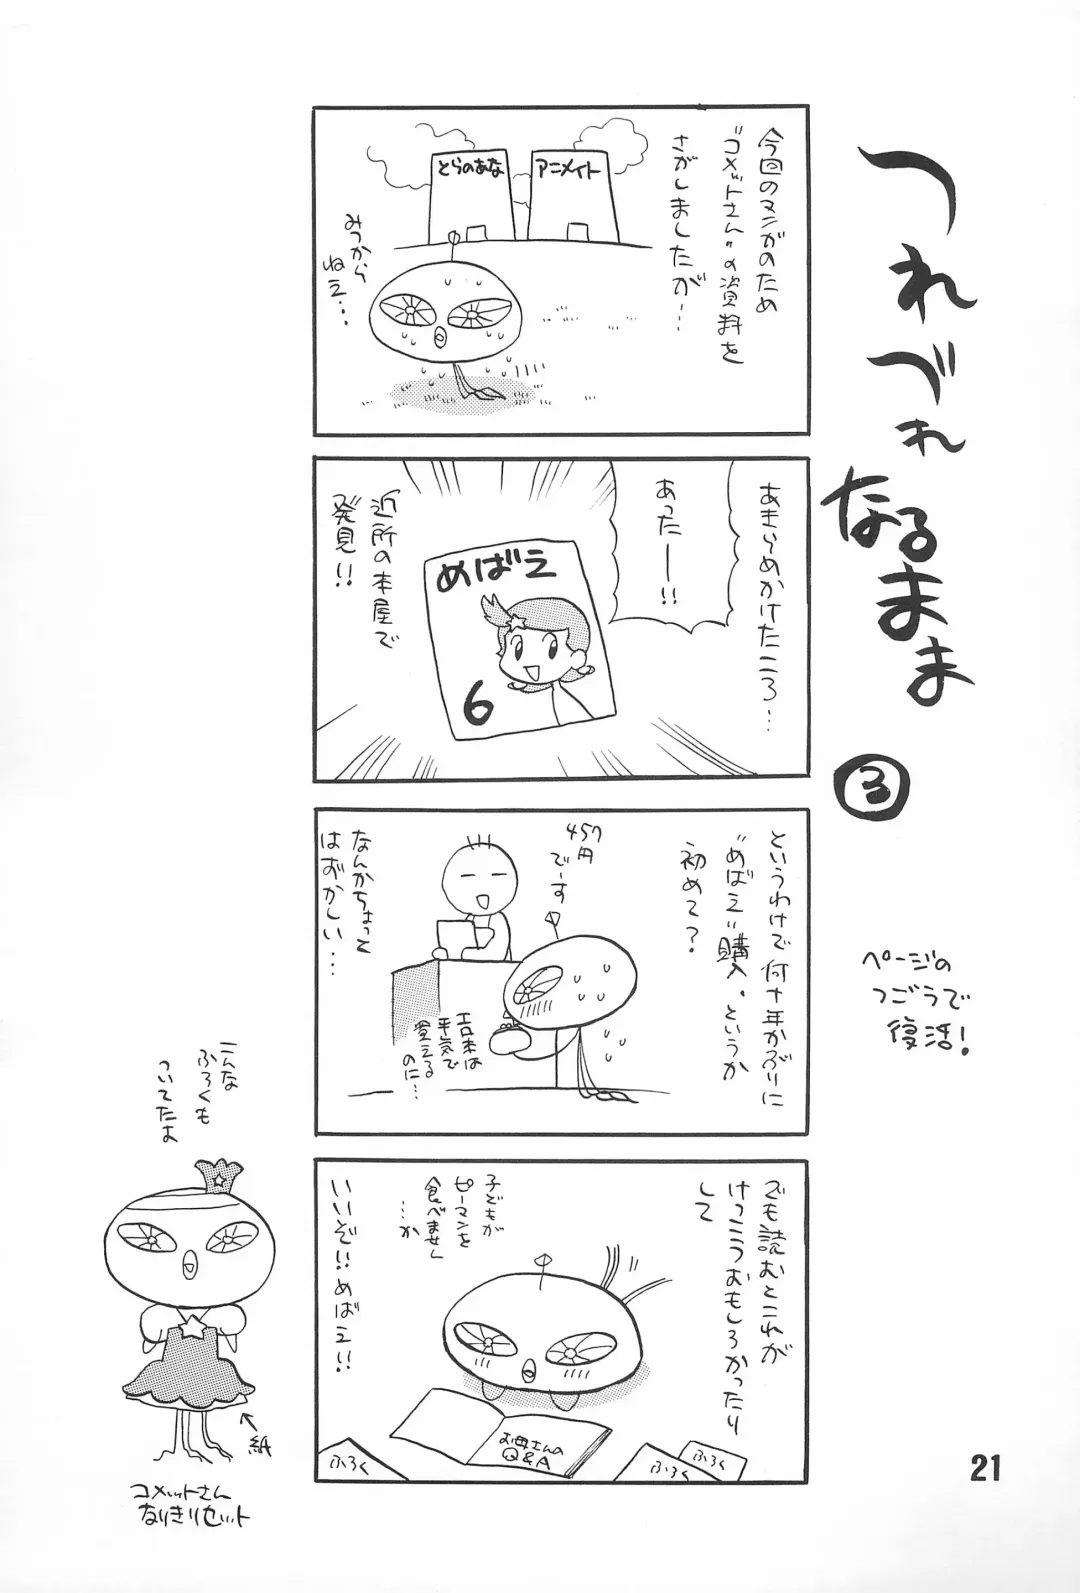 つれづれ
なるまま
③
ページの
つごうで
復活!
今回のマンガのため
"コメットさん"の資料を
さがしましたが…
とらのあな
アニメイト
みつから
ねえ…
あきらめかけたころ…
あったーー!!
めばえ
6
近所の本屋で
発見!!
というわけで何十年かぶりに
"めばえ"購入。というか
初めて?
457円
でーす
エロ本は
平気で
買える
のに…
なんかちょっと
はずかしい…
でも読むとこれが
けっこうおもしろかったり
して
子どもが
ピーマンを
食べません
…か
いいぞ!!めばえ!!
お母さんの
Q&A
ふろく
ふろく
ふろく
こんな
ふろくも
ついてたよ
紙
コメットさん
なりきりセット
21